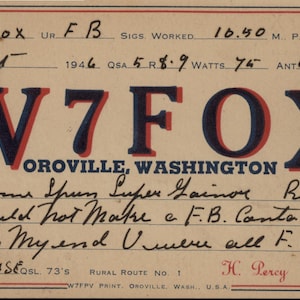 OX UR F B SIGS. WORKED 10.50 M. P
1946 QSA 5 R 8.9 WATTS 75 ANT
W7FOX
OROVILLE, WASHINGTON
Super Gainer R
not Make a F.B. Conta
My end U were all F.
QSL. 73's RURAL ROUTE NO. 1 H. Percy
W7FPV PRINT. OROVILLE. WASH., U.S.A.